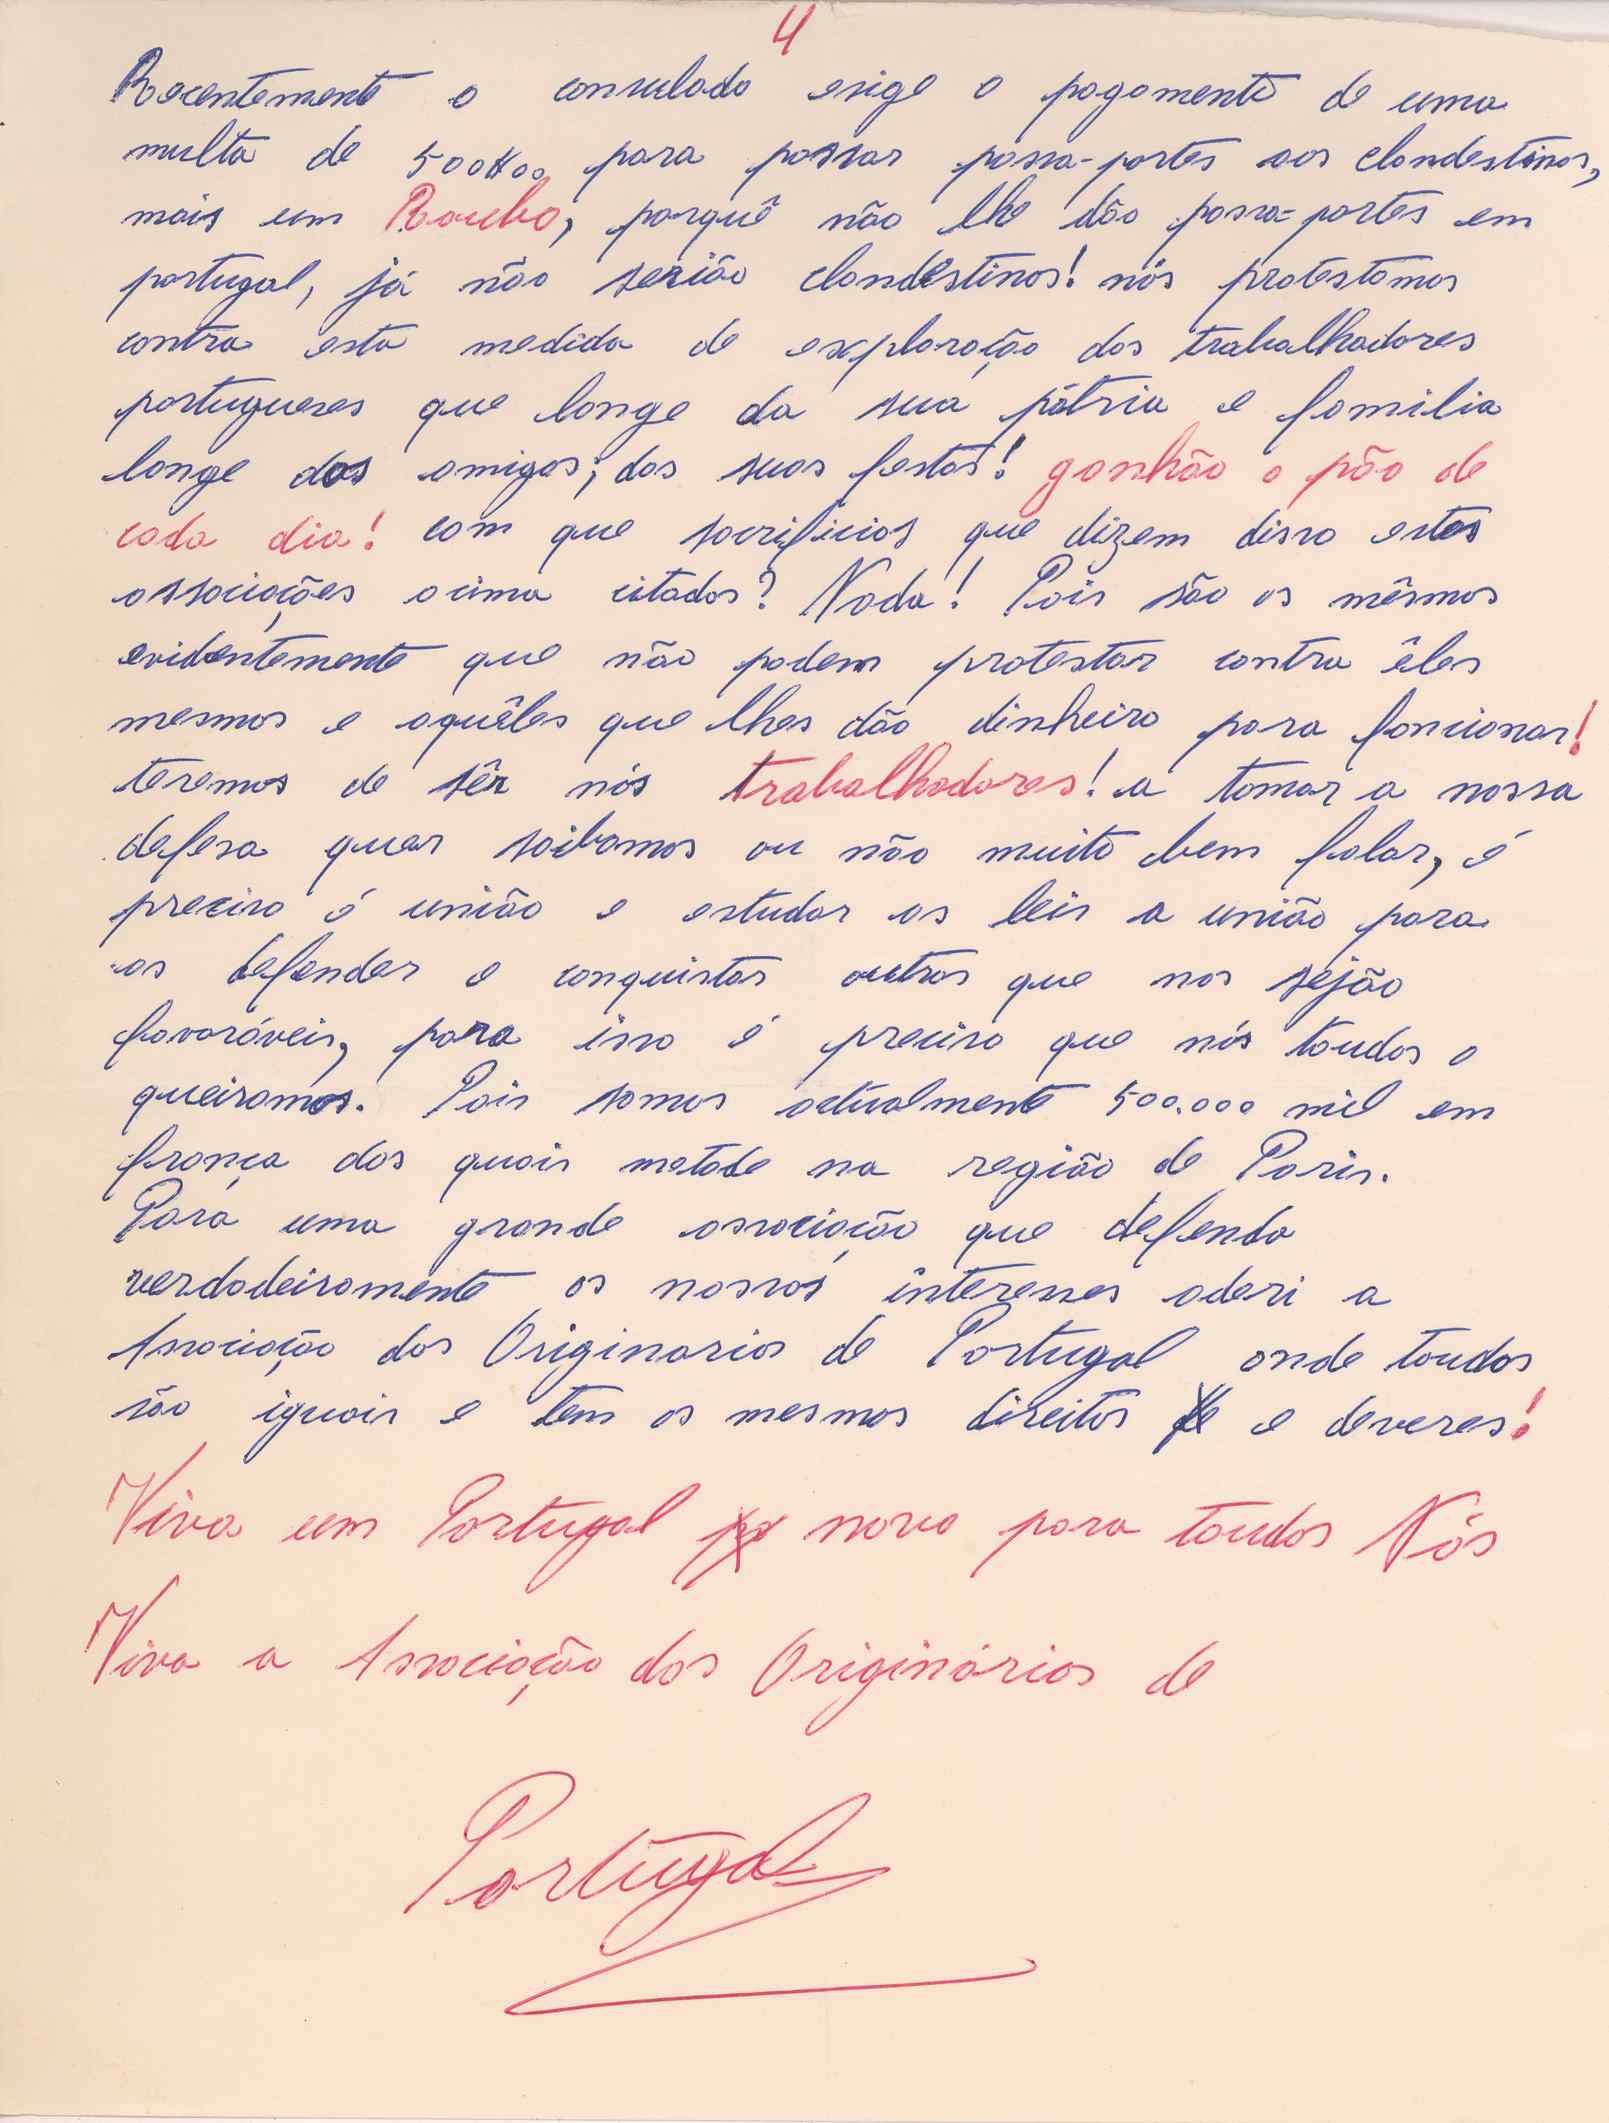 4
Recentemente o consulado exige o pagamento de uma
multa de 500$00 para passar passa-portes aos clandestinos,
mais um Roubo, porquê não lhe dão passa-portes em
portugal, já não serião clandestinos! nós protestamos
contra esta medida de exploração dos trabalhadores
portugueses que longe da sua pátria e familia
longe dos amigos; das suas festas! ganhão o pão de
cada dia! com que sacrificios que dizem disso estas
associações acima citadas? Nada! Pois são os mêsmos
evidentemente que não podem protestar contra êles
mesmos e aquêles que lhes dão dinheiro para foncionar!
teremos de sêr nós trabalhadores! a tomar a nossa
defesa quer saibamos ou não muito bem falar, é
preciso é união e estudar as leis a união para
as defender e conquistar outras que nos sejão
favoráveis, para isso é preciso que nós toudos o
queiramos. Pois somos actualmente 500.000 mil em
frança dos quais metade na região de Paris.
Para uma grande associação que defenda
verdadeiramente os nossos interesses aderi a
Associação dos Originarios de Portugal onde toudos
são iguais e tem os mesmos direitos e deveres!
Viva um Portugal novo para toudos Nós
Viva a Associação dos Originários de
Portugal